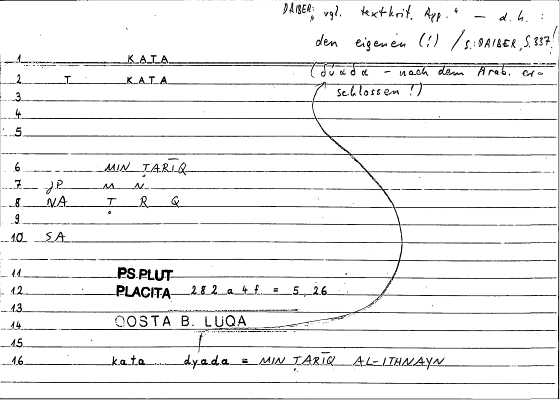 DAIBER: „vgl. textkrit. App." — d.h.:
den eigenen (!) / s. DAIBER, S. 337!
(δυάδα – nach dem Arab. er-
schlossen!)
1 KATA
2 T KATA
3
4
5
6 MIN ṬARĪQ
7 JP M N
8 NA Ṭ R Q
9
10 SA
11 PS.PLUT
12 PLACITA 282 a 4f = 5,26
13
14 QOSTA B. LUQA
15
16 kata dyada = MIN ṬARĪQ AL-ITHNAYN